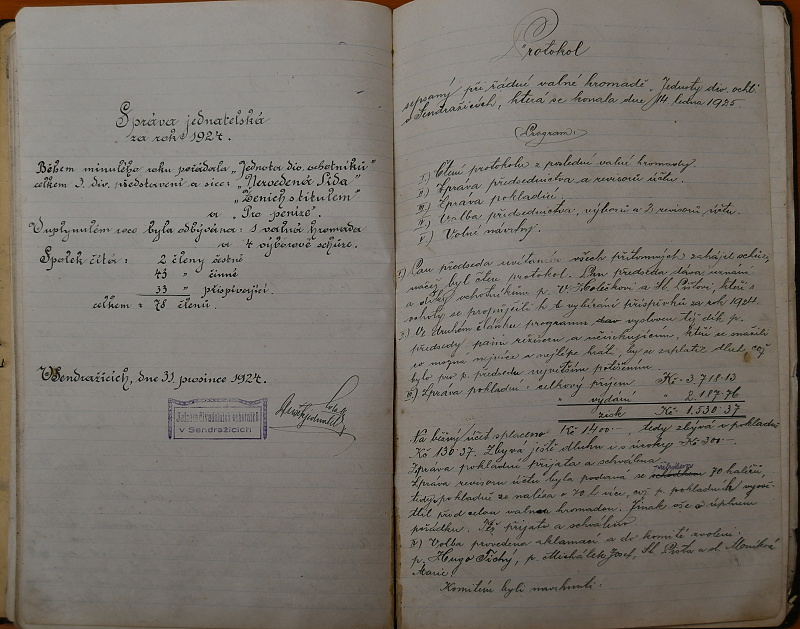 Správa jednatelská
za rok 1924.
Během minulého roku pořádala „Jednota div. ochotníků"
celkem 3. div. představení a sice: „Nevedená Lída"
„Ženich s titulem"
a „Pro peníze".
V uplynulém roce byla odbývána: 1 valná hromada
a 4 výborové schůze.
Spolek čítá: 2 členy čestné
43 " činné
33 " přispívající.
celkem: 78 členů.
V Sendražicích, dne 31. prosince 1924.
Jednota divadelních ochotníků
v Sendražicích
Protokol
sepsaný při řádné valné hromadě „Jednoty div. ochot.
v Sendražicích, která se konala dne 14. ledna 1925
Program:
I.) Čtení protokolu z poslední valné hromady.
II.) Zpráva předsednictva a revisorů účtu.
III.) Zpráva pokladní.
IV.) Volba předsednictva, výborů a 2 revisorů účtu.
V.) Volné návrhy.
1.) Pan předseda uvítáním všech přítomných zahájil schůzi,
načež byl čten protokol. Pan předseda dává uznání
a díky ochotníkům p. V. Holečkovi a St. Píštovi, kteří s
ochotly se propůjčili k t. vybírání příspěvků za rok 1924.
2.) Ve druhém článku programu dav vysloven též dík p.
předsedy paní režisoru a účinkujícím, kteří se snažili
co možná nejvíce a nejlépe hrát, by se zaplatil dluh, což
bylo pro p. předsedu největším potěšením.
III) Zpráva pokladní: celkový příjem Kč 3.718·13
" vydání " 2.187·76
zisk Kč 1.530·37
Na běžný účet splaceno Kč 1400·– , tedy zbývá v pokladně
Kč 130·37. Zbývá ještě dluhu i s úroky Kč 300·–
Zpráva pokladní přijata a schválena.
Zpráva revisorů účtu byla podávaná se 70 haléři,
tedy pokladně se nalézá o 70 h více, což p. pokladník vysvě-
tlil před celou valnou hromadou. Jinak vše v úplném
pořádku. Též přijato a schváleno
IV) Volba provedena aklamací a do komité zvoleni:
p. Hugo Tichý, p. Michálek Josef, St. Píšta a sl. Moníková
Marie.
Komitém byli navrhnuti: